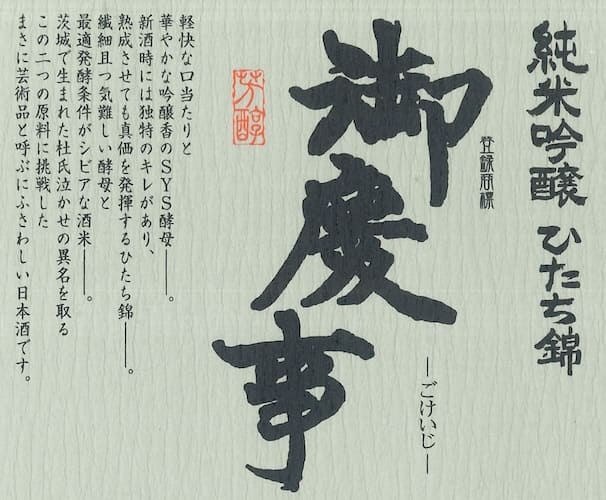 純米吟醸 ひたち錦
登録商標
御慶事
―ごけいじ―
芳醇
軽快な口当たりと
華やかな吟醸香のSYS酵母――。
新酒時には独特のキレがあり、
熟成させても真価を発揮するひたち錦――。
繊細且つ気難しい酵母と
最適発酵条件がシビアな酒米――。
茨城で生まれた杜氏泣かせの異名を取る
この二つの原料に挑戦した
まさに芸術品と呼ぶにふさわしい日本酒です。